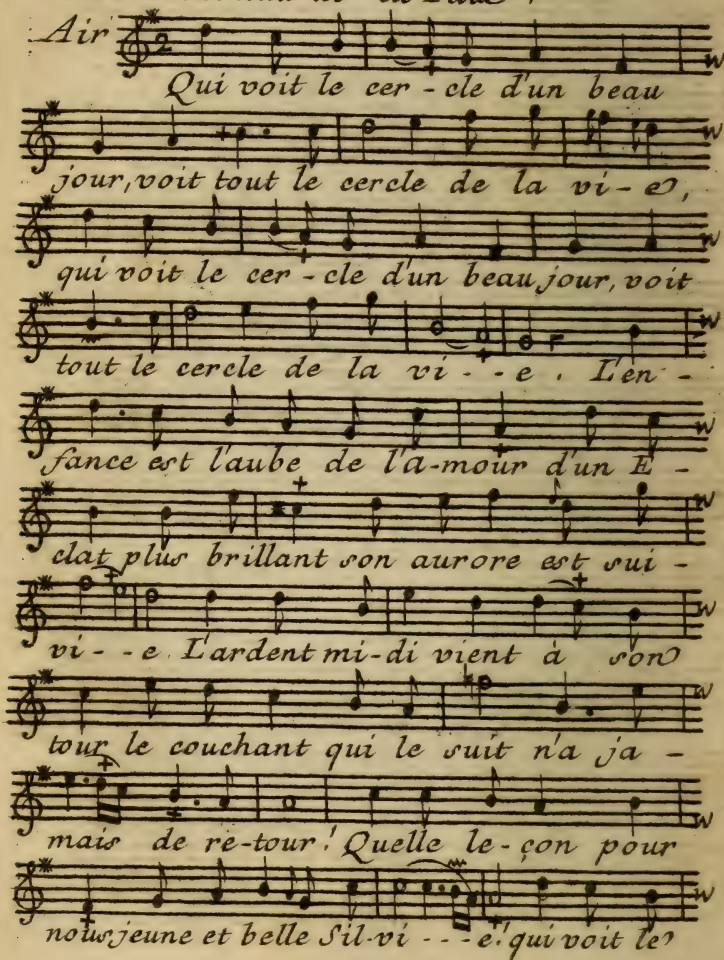 Air 2
Qui voit le cer - cle d'un beau
jour, voit tout le cercle de la vi - e,
qui voit le cer - cle d'un beau jour, voit
tout le cercle de la vi - - e . L'en -
fance est l'aube de l'a - mour d'un E -
clat plus brillant son aurore est sui -
vi - - e . L'ardent mi - di vient à son
tour le couchant qui le suit n'a ja -
mais de re - tour ! Quelle le - çon pour
nous, jeune et belle Sil - vi - - - e ! qui voit le